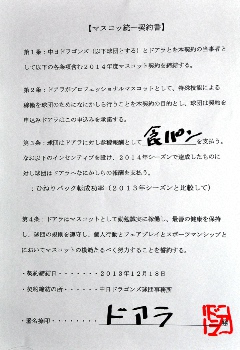 【マスコット統一契約書】
第1条：中日ドラゴンズ（以下球団とする）とドアラとを本契約の当事者と
して以下の各条項含む2014年度マスコット契約を締結する。
第2条：ドアラがプロフェッショナルマスコットとして、特殊技能による
稼働を球団のためになにかしら行うことを本契約の目的とし、球団は契約を
申込みドアラはこの申込みを承諾する。
第3条：球団はドアラに対し 報酬として 食パン を支払う。
なお以下のインセンティブを設け、2014年シーズンで達成したものに
対し球団はドアラへなにかしらの報酬を支払う。
：ひねりバック転成功率（2013年シーズンと比較して）
第4条：ドアラはマスコットとして 稼働し、最善の健康を保持
し、球団の規則を遵守し、個人行動とフェアプレイとスポーツマンシップと
においてマスコットの模範たるべく努力することを誓約する。
・契約締結日・・・・・・・2013年12月18日
・契約締結の所・・・・・・中日ドラゴンズ球団事務所
・署名捺印・・・・・ ドアラ